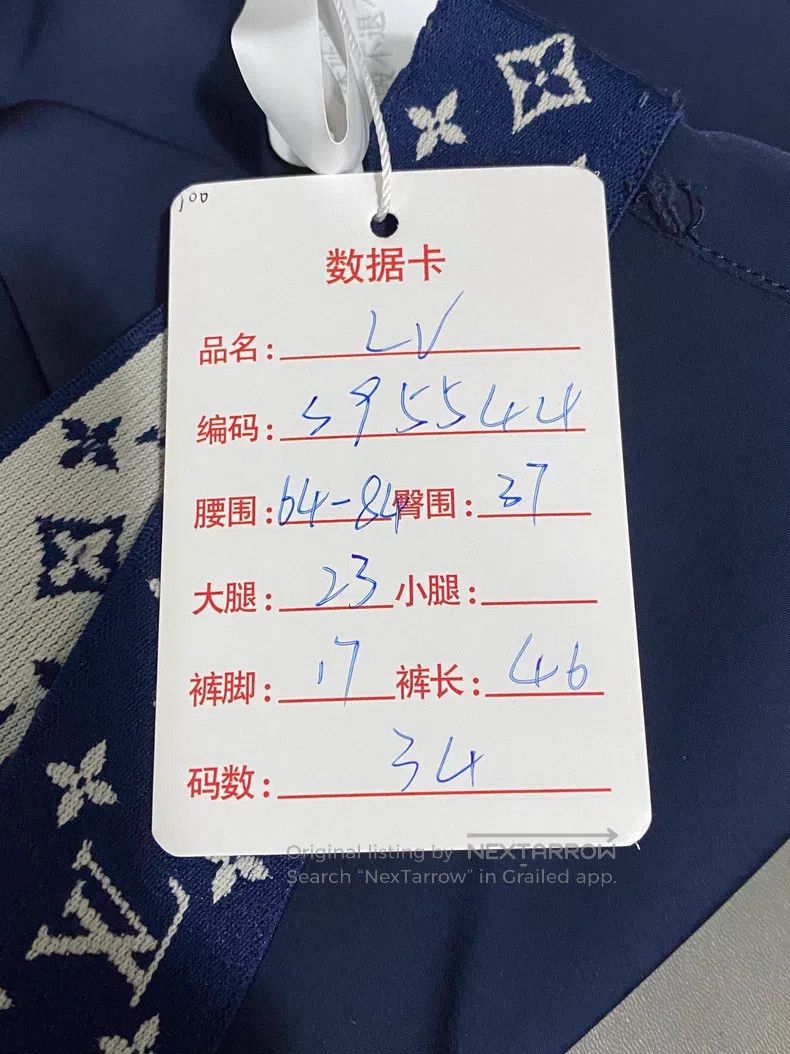 100
数据卡
品名: LV
编码: S95544
腰围: 64-84 臀围: 37
大腿: 23 小腿:
裤脚: 17 裤长: 46
码数: 34
Original listing by NEXTARROW
Search “NexTarrow” in Grailed app.
LV